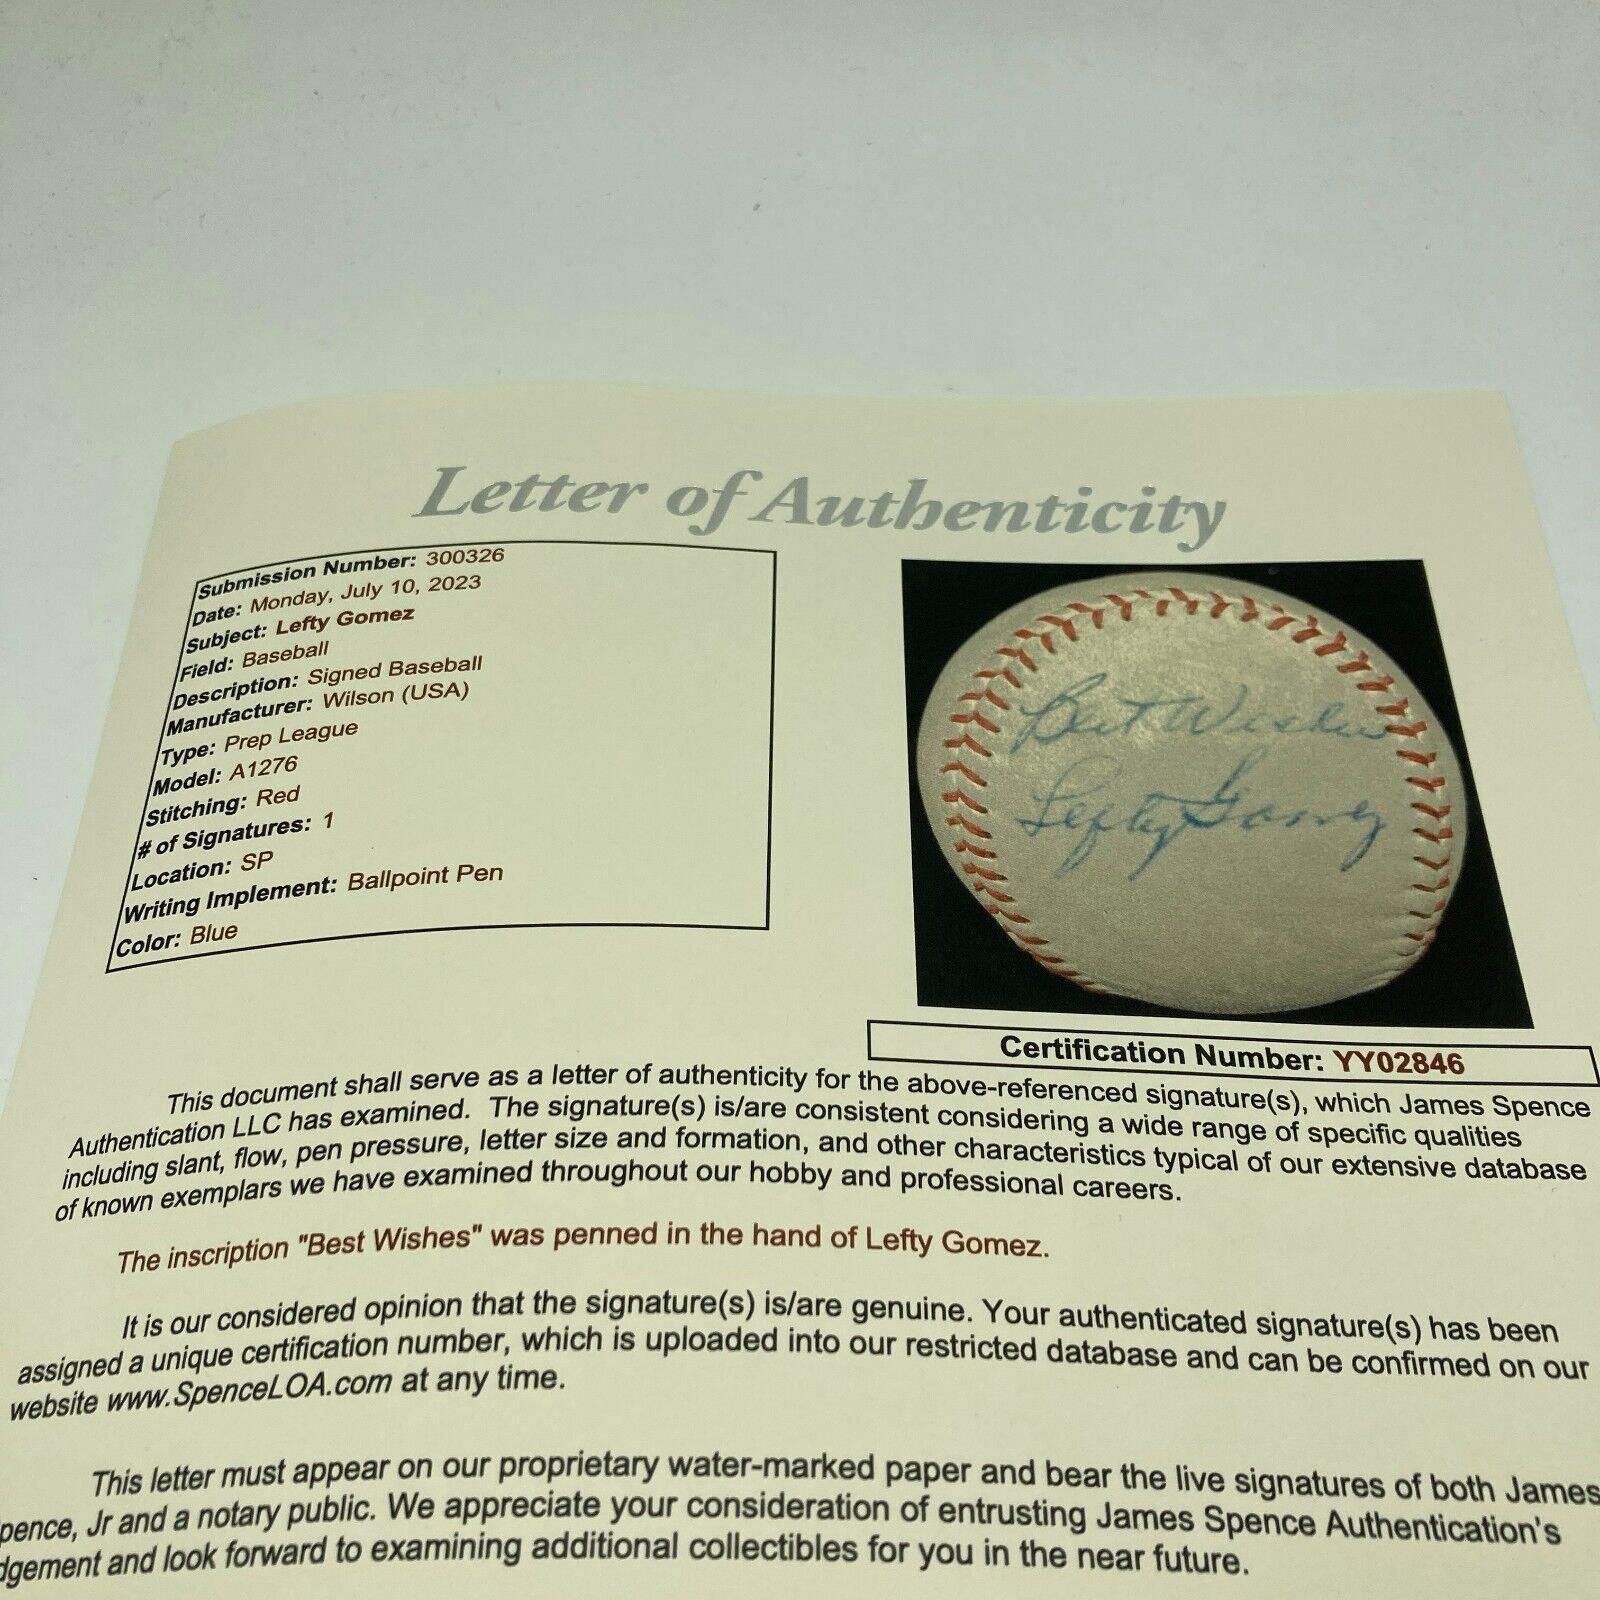 Letter of Authenticity
Submission Number: 300326
Date: Monday, July 10, 2023
Subject: Lefty Gomez
Field: Baseball
Description: Signed Baseball
Manufacturer: Wilson (USA)
Type: Prep League
Model: A1276
Stitching: Red
# of Signatures: 1
Location: SP
Writing Implement: Ballpoint Pen
Color: Blue
Best Wishes
Lefty Gomez
Certification Number: YY02846
This document shall serve as a letter of authenticity for the above-referenced signature(s), which James Spence
Authentication LLC has examined. The signature(s) is/are consistent considering a wide range of specific qualities
including slant, flow, pen pressure, letter size and formation, and other characteristics typical of our extensive database
of known exemplars we have examined throughout our hobby and professional careers.
The inscription "Best Wishes" was penned in the hand of Lefty Gomez.
It is our considered opinion that the signature(s) is/are genuine. Your authenticated signature(s) has been
assigned a unique certification number, which is uploaded into our restricted database and can be confirmed on our
website www.SpenceLOA.com at any time.
This letter must appear on our proprietary water-marked paper and bear the live signatures of both James
pence, Jr and a notary public. We appreciate your consideration of entrusting James Spence Authentication's
dgement and look forward to examining additional collectibles for you in the near future.